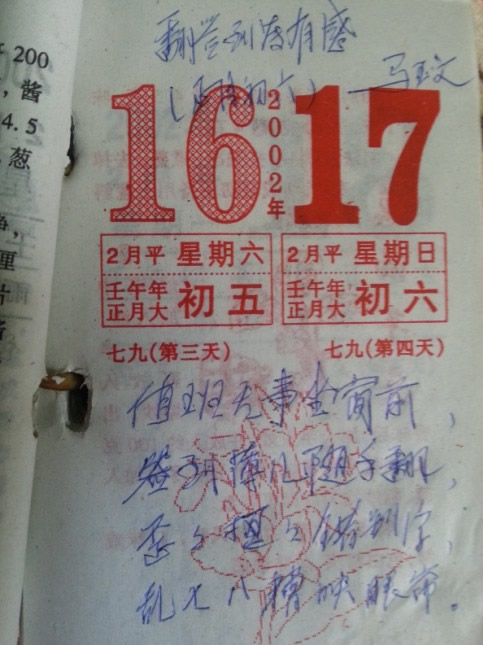 200
，酱
4.5
葱
厘
翻签到者有感
（正月初六）
马玉文
16
2002年
17
2月平 星期六
2月平 星期日
壬午年
正月大 初五
壬午年
正月大 初六
七九(第三天)
七九(第四天)
值班无事坐窗前，
签到簿儿随手翻，
歪歪扭扭错别字，
乱七八糟映眼帘。